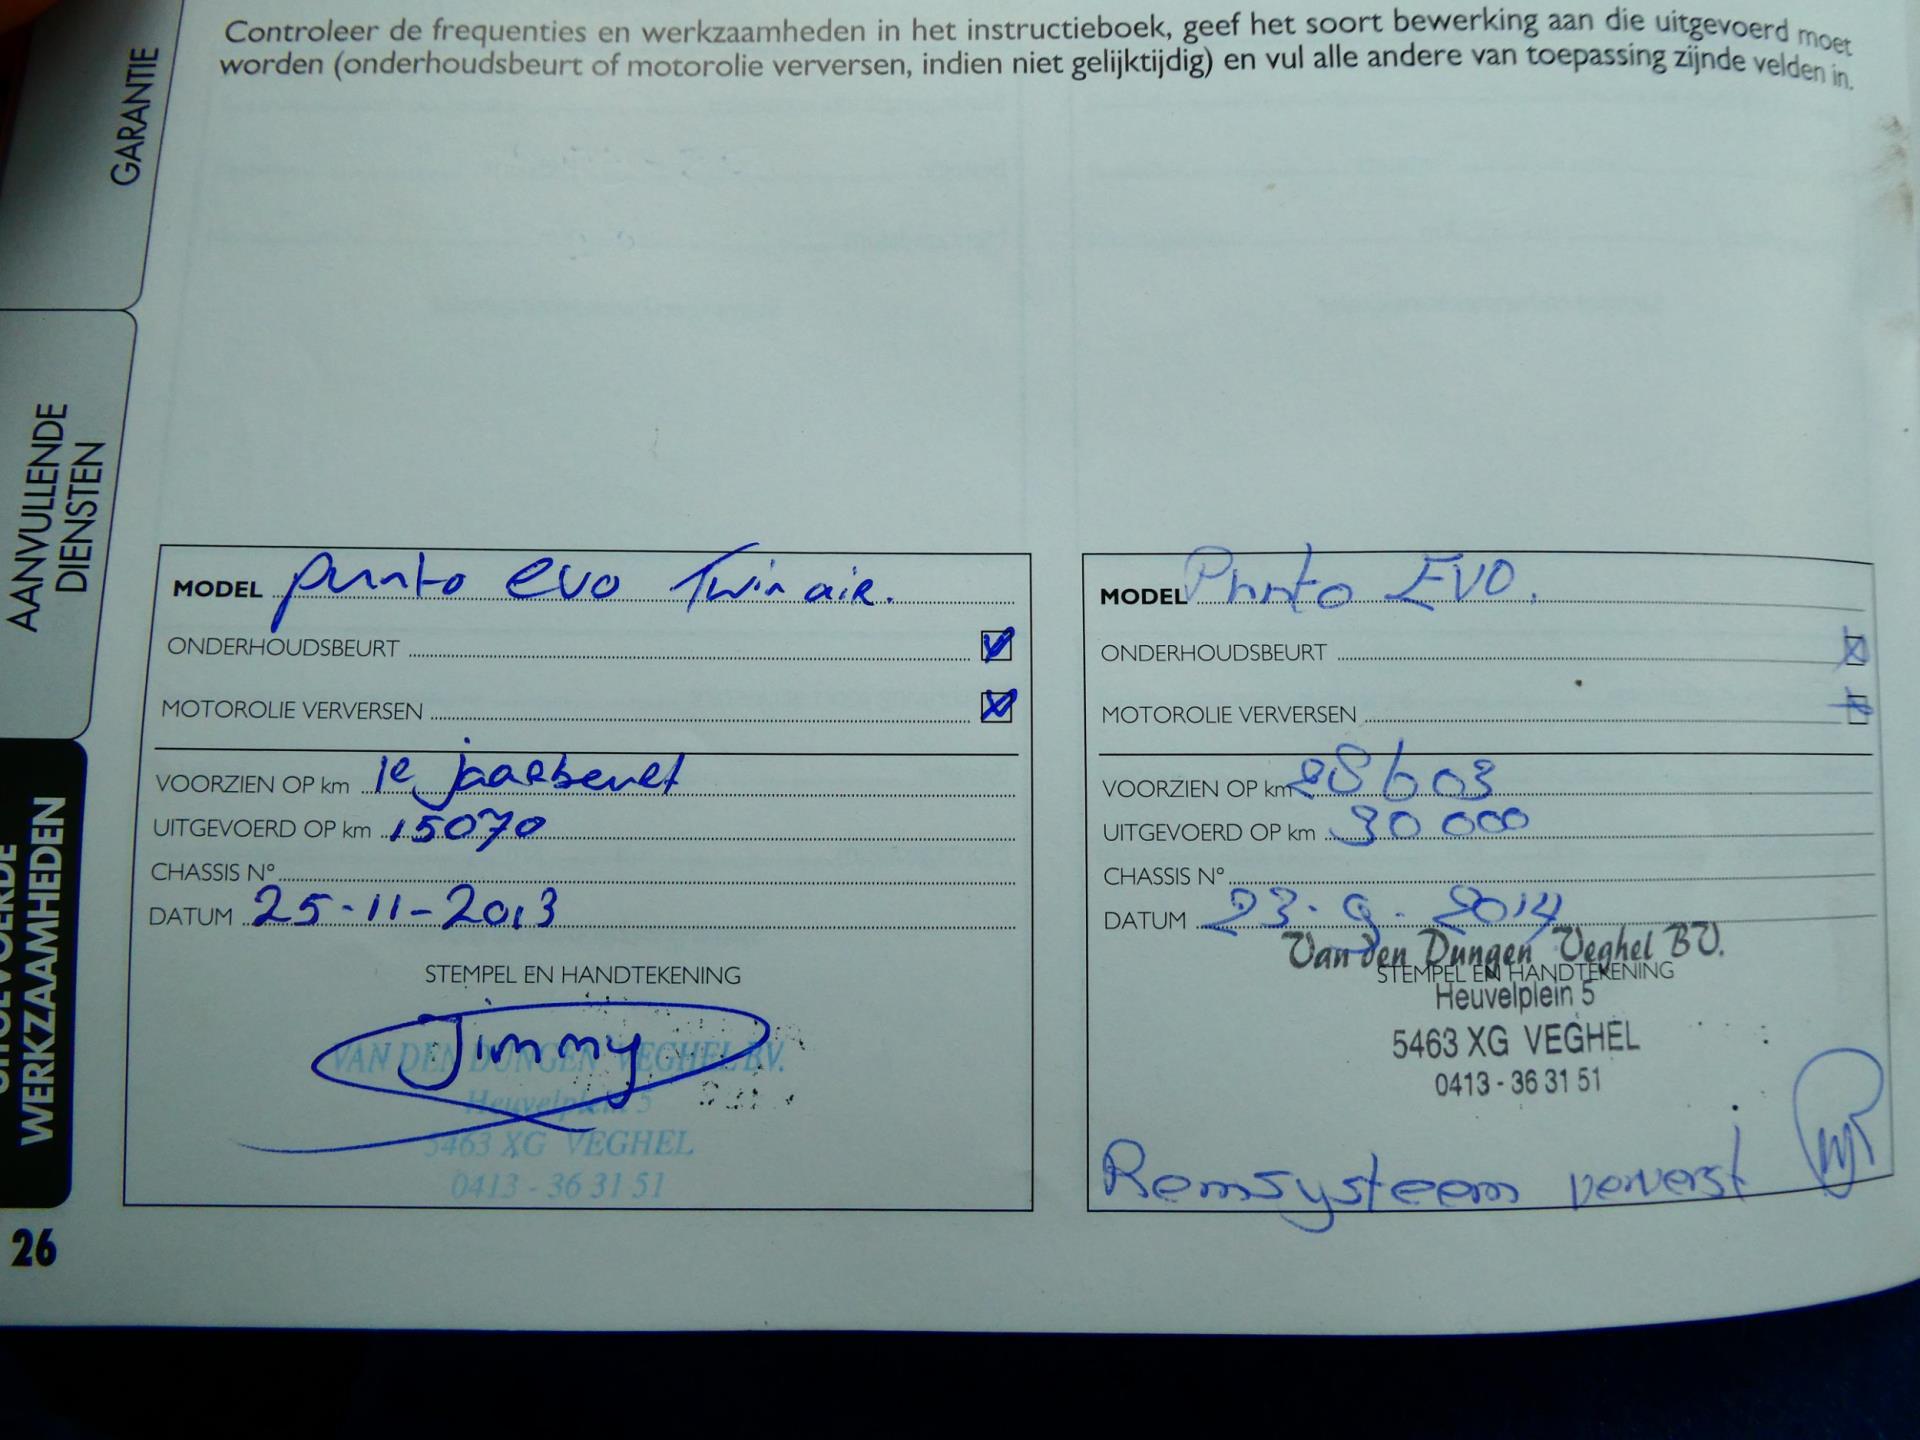 Controleer de frequenties en werkzaamheden in het instructieboek, geef het soort bewerking aan die uitgevoerd moet
worden (onderhoudsbeurt of motorolie verversen, indien niet gelijktijdig) en vul alle andere van toepassing zijnde velden in.
GARANTIE
AANVULLENDE
DIENSTEN
WERKZAAMHEDEN
26
MODEL punto evo Twin air.
ONDERHOUDSBEURT
MOTOROLIE VERVERSEN
VOORZIEN OP km 1e jaarbeurt
UITGEVOERD OP km 15070
CHASSIS N°
DATUM 25-11-2013
STEMPEL EN HANDTEKENING
Jimmy
VAN DEN DUNGEN VEGHEL BV.
Heuvelplein 5
5463 XG VEGHEL
0413 - 36 31 51
MODEL Punto EVO.
ONDERHOUDSBEURT
MOTOROLIE VERVERSEN
VOORZIEN OP km 28603
UITGEVOERD OP km 30 000
CHASSIS N°
DATUM 23-9-2014
Van den Dungen Veghel BV.
STEMPEL EN HANDTEKENING
Heuvelplein 5
5463 XG VEGHEL
0413 - 36 31 51
Remsysteem ververst